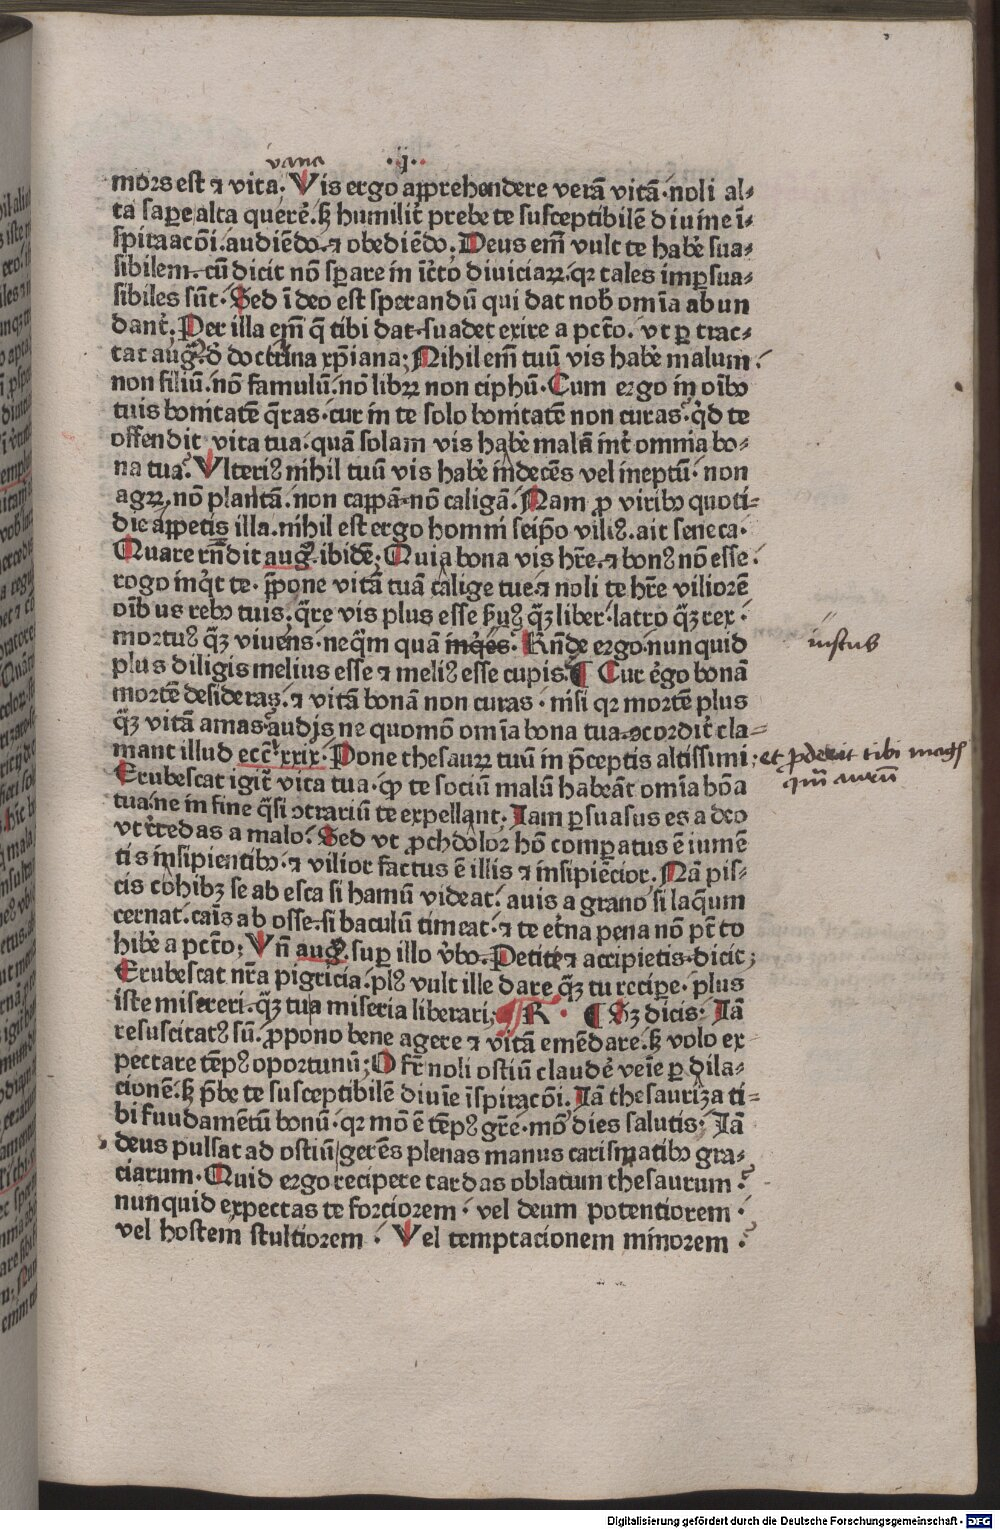 vana
·ij·
mors est ⁊ vita. Vis ergo apprehendere verā vitā·noli al-
ta sapere alta querēꝰ.ꝫ humilit᷒ prebe te susceptibilē diuine ī-
spiraacōi.audiēdo.⁊ obediēdo.Deus em̄ vult te habe᷒ sua-
sibilem.cū dicit nō sperare in īc̄to diuiciaꝝ.qꝛ tales impersua-
sibiles sūt.Sed ī deo est sperandū qui dat nob᷒ omīa abun
dant᷒.Per illa em̄ q̄ tibi dat suadet exire a pctō.vt ꝑ trac-
tat aug᷒.d᷒ doctrina xp̄iana;Nihil em̄ tuū vis habe᷒ malum.
non filiū.nō famulū.nō libꝝ non ciphū.Cum ergo in oībꝰ
tuis bonitatē q̄ras.cur in te solo bonitatē non curas.qͥd te
offendit vita tua.quā solam vis habe᷒ malā int᷒ omnia bo-
na tua.Vlteriꝰ nihil tuū vis habe᷒ indecēs vel ineptū.non
agꝝ.nō plantā.non cappā.nō caligā.Nam ꝓ viribꝰ quoti-
die appetis illa.nihil est ergo homini seip̄o viliꝰ.ait seneca.
Quare rn̄dit aug᷒.ibidē;Quia bona vis hr̄e.⁊ bonꝰ nō esse.
rogo inqͥt te.p̄pone vitā tuā calige tue.⁊ noli te hr̄e viliorē
oīb us rebꝰ tuis.q̄re vis plus esse ẞuꝰ qꝫ̄ liber.latro qꝫ̄ rex.
mortuꝰ qꝫ̄ viuens.neqͥm quā inqͥes.Rn̄de ergo.nunquid
iustus
plus diligis melius esse ⁊ meliꝰ esse cupis.¶ Cur ergo bonā
mortē desideras.⁊ vitā bonā non curas.nisi qꝛ mortē plus
qꝫ̄ vitā amas.audis ne quomō omīa bona tua ꝯcordit᷒ cla-
mant illud ecc̄ᵗ.xxix.Pone thesauꝝ tuū in p̄ceptis altissimi;
et ꝓderit tibi magꝭ
qm̄ aurū
Erubescat igit᷒ vita tua.ꝙ te sociū malū habeāt omīa bōa
tua.ne in fine qͣsi ꝯtrariū te expellant.Iam ꝑsuasus es a deo
vt r̄cedas a malo.Sed vt ꝓchdolor hō comparatus ē iumē
tis insipientibꝰ.⁊ vilior factus ē illis ⁊ insipiēcior.Nā pis-
cis cohibꝫ se ab esca si hamū videat.auis a grano si laqͤum
cernat.cais ab osse.si baculū timeat.⁊ te et᷒na pena nō pt̄ to
hibe᷒ a pctō;Vn̄ aug᷒.suꝑ illo v᷒bo.Petite ⁊ accipietis.dicit;
Erubescat nr̄a pigricia.plꝰ vult ille dare qꝫ̄ tu recipe᷒.plus
iste misereri.qꝫ̄ tua miseria liberari; R. ¶ Sꝫ dicis.Iā
resuscitatꝰ sū.ꝓpono bene agere ⁊ vitā emēdare.ꝫ volo ex
pectare tēpꝰ oportunū;O fr̄ noli ostiū claude᷒ veīe ꝑ dila-
cionē.ꝫ p̄be te susceptibilē diuīe īspiracōi.Iā thesauriza ti-
bi fuudamētū bonū.qꝛ mō ē tēpꝰ gr̄e.mō dies salutis.Iā
deus pulsat ad ostiū gerēs plenas manus carismatibꝰ gra-
ciarum.Quid ergo recipere tardas oblatum thesaurum?
nunquid expectas te forciorem.vel deum potentiorem.
vel hostem stultiorem.Vel temptacionem minorem.?
Digitalisierung gefördert durch die Deutsche Forschungsgemeinschaft - DFG